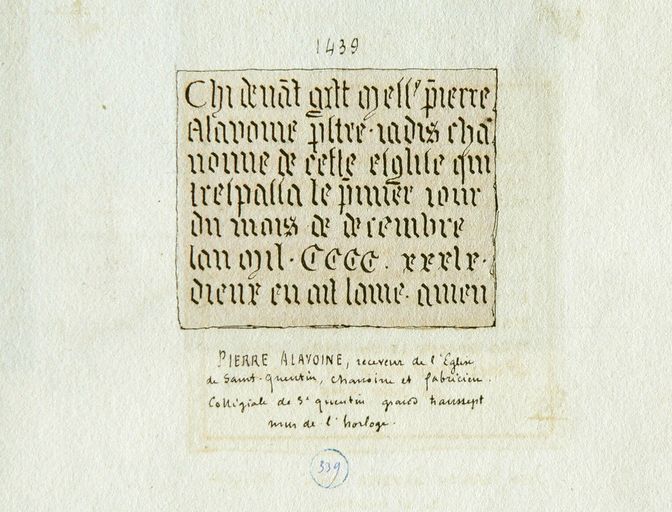 1439
Chi devāt gist mess' p̄ierre
Alavoine p̄bstre · iadis cha
noinne de ceste esglise qui
trespassa le p̄mier iour
du mois de decembre
lan mil · CCCC · xxxix ·
dieux en ait lame · amen
PIERRE ALAVOINE, receveur de l'Eglise
de Saint-Quentin, chanoine et fabricien.
Collégiale de St quentin grand transsept
mur de l'horloge.
339